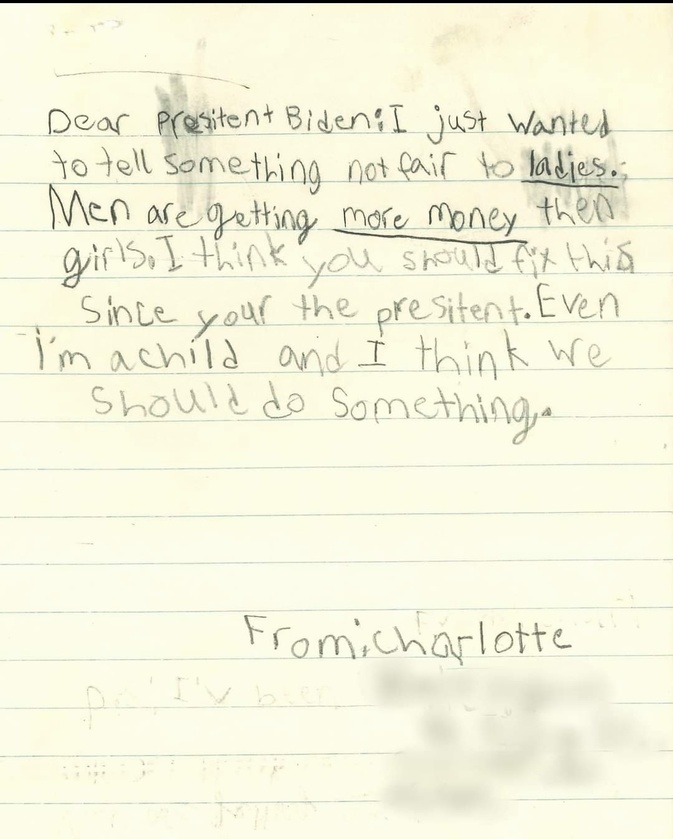 Dear Presitent Biden: I just wanted
to tell something not fair to ladies.
Men are getting more money then
girls. I think you should fix this
Since your the presitent. Even
I'm a child and I think we
should do something.
From: Charlotte